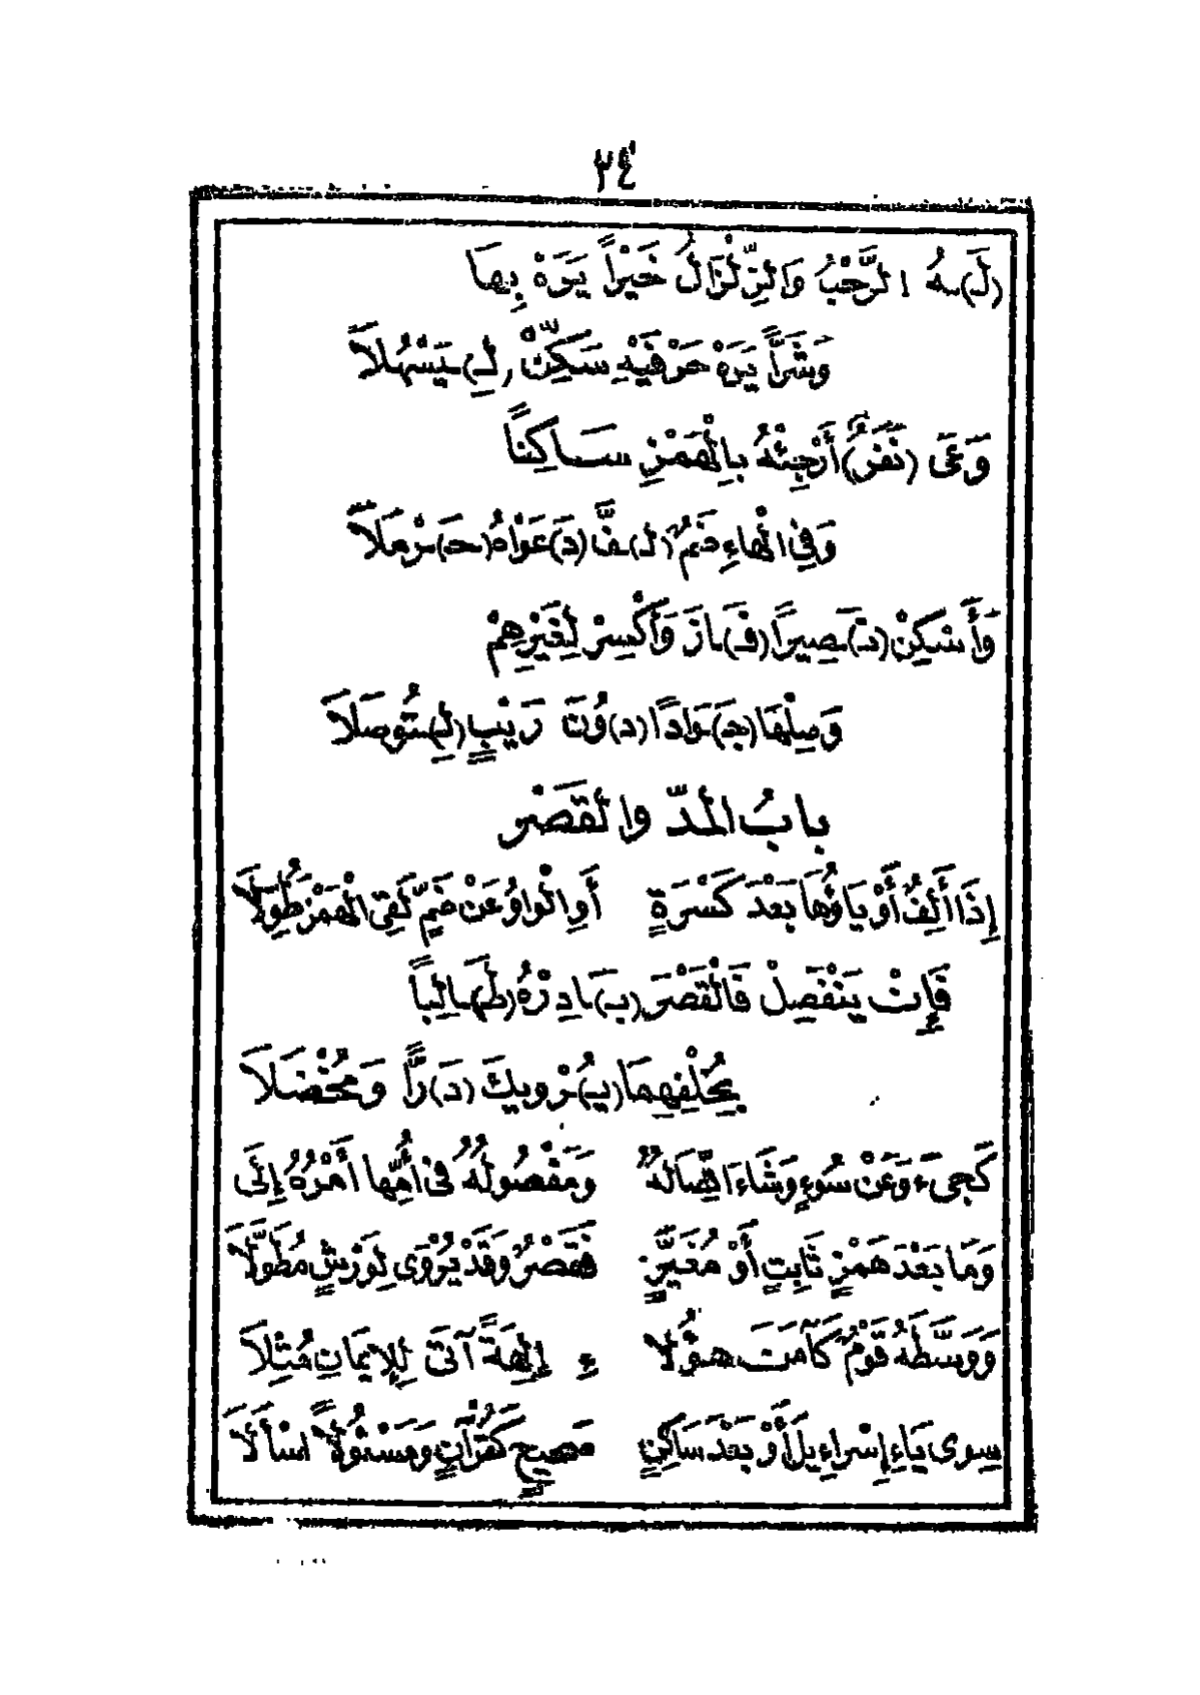 ٣٤
(لَـ)ـهُ الرَّحْبُ وَالزِّلْزَالُ خَيْراً يَرَهْ بِهَا
وَشَرًّا يَرَهْ حَرْفَيْهِ سَكِّنْ (لِـ)ـيَسْهُلَا
وَعَى (نَفَرٌ) أَرْجِئْهُ بِالْهَمْزِ سَاكِناً
وَفِي الْهَاءِ ضَمٌّ (لَـ)ـفَّ (دَ)عْوَاهُ (حَـ)ـرْمَلَا
وَأَسْكِنْ (نَـ)ـصِيرًا (فَـ)ـازَ وَاكْسِرْ لِغَيْرِهِمْ
وَصِلْهَا (جَـ)ـوَادًا (دُ)ونَ رَيْبٍ (لِـ)ـتُوصَلَا
بابُ المدّ والقَصْر
إِذَا أَلِفٌ أَوْ يَاؤُهَا بَعْدَ كَسْرَةٍ أَوِ الْوَاوُ عَنْ ضَمٍّ لَقِي الْهَمْزَ طُوِّلَا
فَإِنْ يَنْفَصِلْ فَالْقَصْرَ (بَـ)ـادِرْهُ (طَـ)ـالِباً
بِخُلْفِهِمَا (يُـ)ـرْوِيكَ (دَ)رًّا وَمُخْضَلَا
كَجِيءَ وَعَنْ سُوءٍ وَشَاءَ اتِّصَالُهُ وَمَفْصُولُهُ فِي أُمِّهَا أَمْرُهُ إِلَى
وَمَا بَعْدَ هَمْزٍ ثَابِتٍ أَوْ مُغَيَّرٍ فَقَصْرٌ وَقَدْ يُرْوَى لِوَرْشٍ مُطَوَّلَا
وَوَسَّطَهُ قَوْمٌ كَآمَنَ هـؤُلَا ءِ إلِهَةً آتَى لِلإِيمَانِ مُثِّلَا
سِوى يَاءِ إِسْرَاءِيلَ أَوْ بَعْدَ سَاكِنٍ صَحِيحٍ كَقُرْآنٍ وَمَسْئُولاً اسْأَلَا